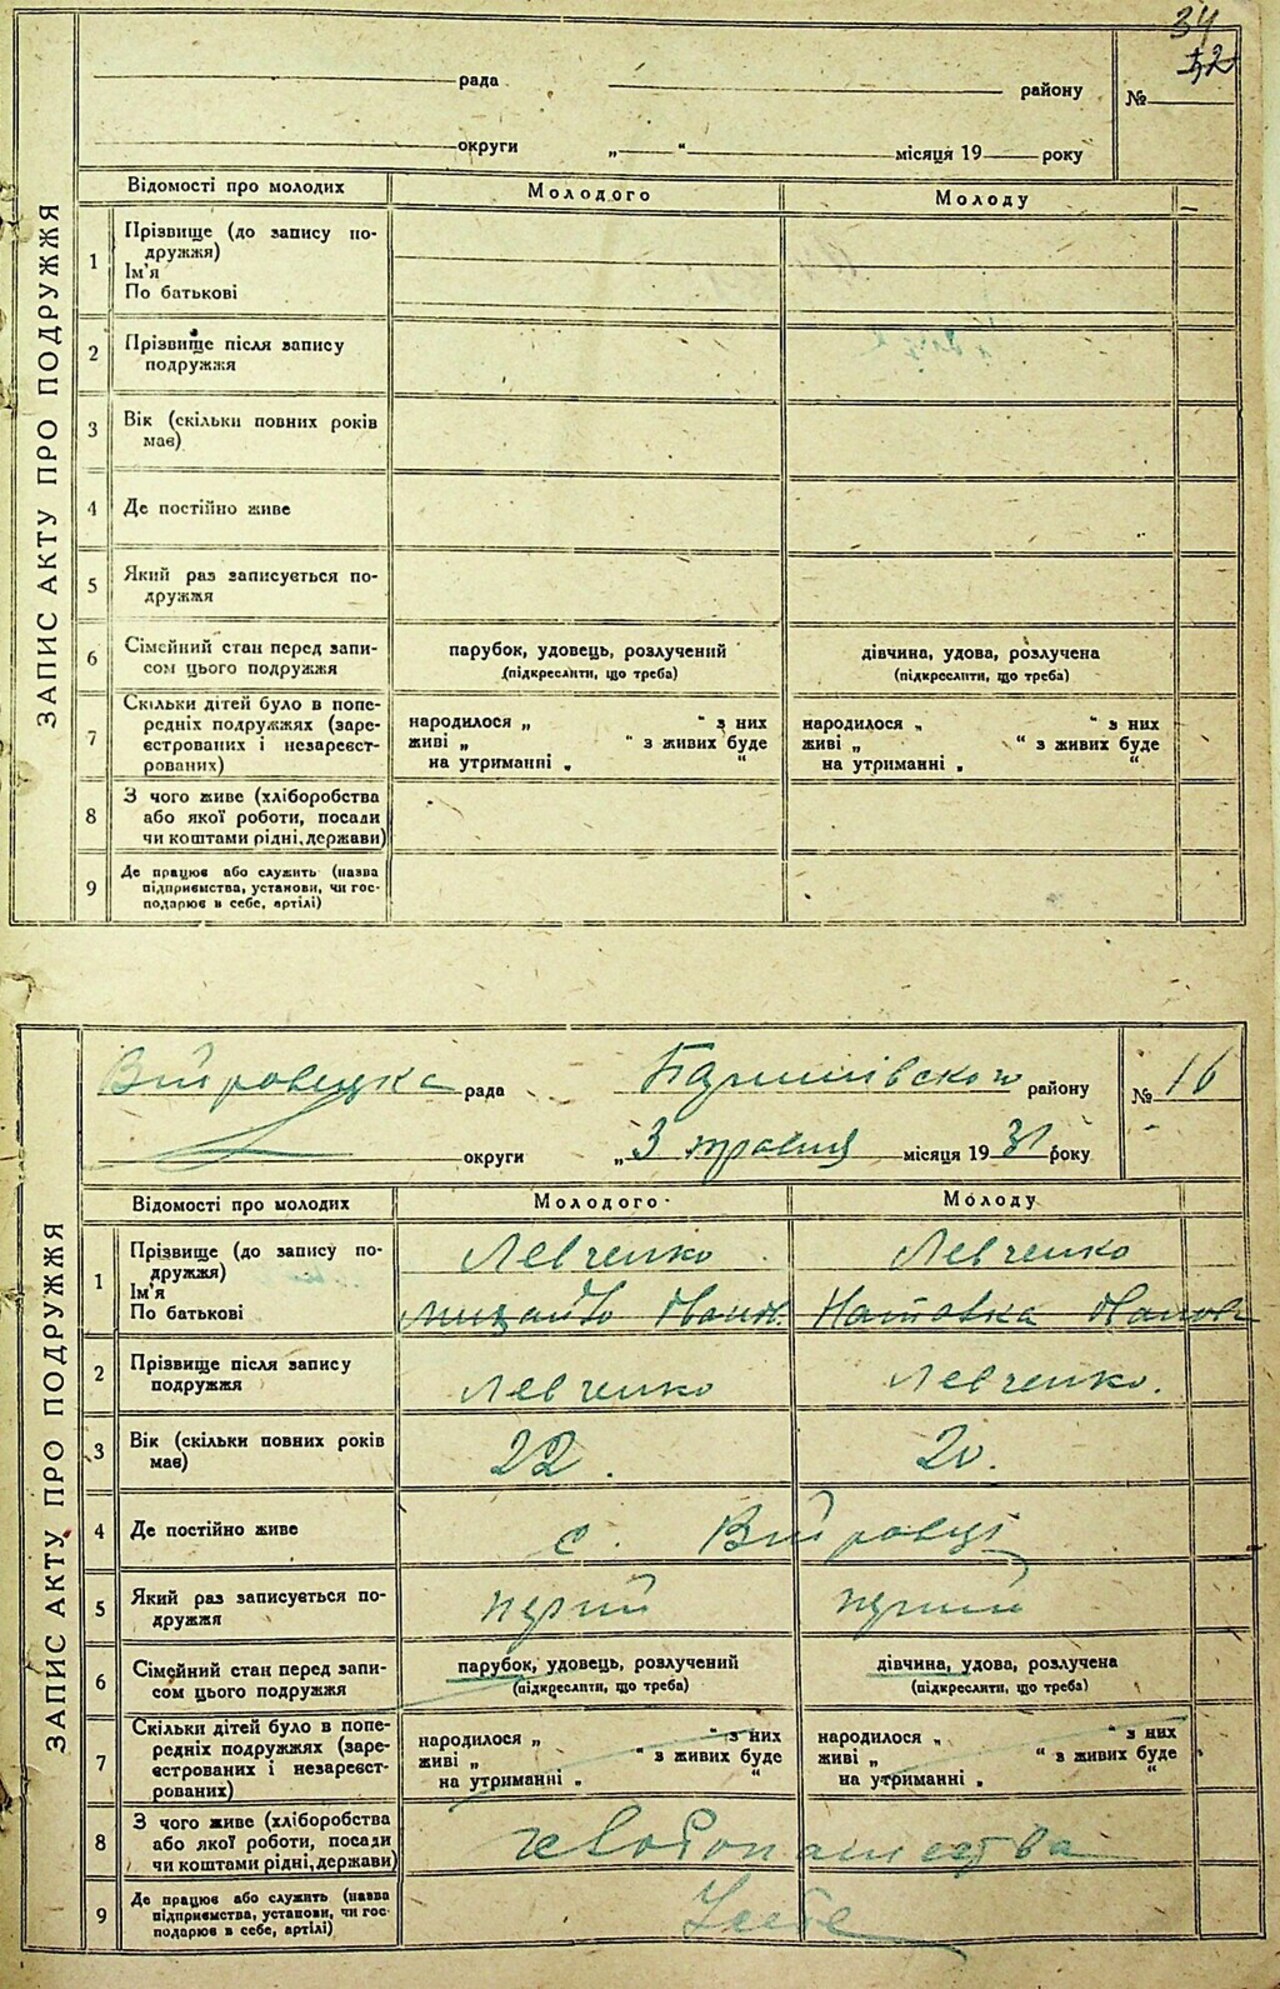 34
32
ЗАПИС АКТУ ПРО ПОДРУЖЖЯ
рада району №
округи „ “ місяця 19 року
Відомості про молодих Молодого Молоду
1 Прізвище (до запису по-
дружжя)
Ім'я
По батькові
2 Прізвище після запису
подружжя
3 Вік (скільки повних років
має)
4 Де постійно живе
5 Який раз записується по-
дружжя
6 Сімейний стан перед запи- парубок, удовець, розлучений дівчина, удова, розлучена
сом цього подружжя (підкреслити, що треба) (підкреслити, що треба)
7 Скільки дітей було в попе-
редніх подружжях (заре- народилося „ “ з них народилося „ “ з них
єстрованих і незареєст- живі „ “ з живих буде живі „ “ з живих буде
рованих) на утриманні „ “ на утриманні „ “
8 З чого живе (хліборобства
або якої роботи, посади
чи коштами рідні, держави)
9 Де працює або служить (назва
підприємства, установи, чи гос-
подарює в себе, артілі)
ЗАПИС АКТУ ПРО ПОДРУЖЖЯ
рада району № 16
округи „3 травня місяця 1931 року
Відомості про молодих Молодого Молоду
1 Прізвище (до запису по- Левченко Левченко
дружжя)
Ім'я
По батькові Михайло Іванов. Наталка Іванов
2 Прізвище після запису Левченко Левченко.
подружжя
3 Вік (скільки повних років 22. 20.
має)
4 Де постійно живе с. Війтівці
5 Який раз записується по-
дружжя
6 Сімейний стан перед запи- парубок, удовець, розлучений дівчина, удова, розлучена
сом цього подружжя (підкреслити, що треба) (підкреслити, що треба)
7 Скільки дітей було в попе-
редніх подружжях (заре- народилося „ “ з них народилося „ “ з них
єстрованих і незареєст- живі „ “ з живих буде живі „ “ з живих буде
рованих) на утриманні „ “ на утриманні „ “
8 З чого живе (хліборобства
або якої роботи, посади
чи коштами рідні, держави)
9 Де працює або служить (назва
підприємства, установи, чи гос-
подарює в себе, артілі)